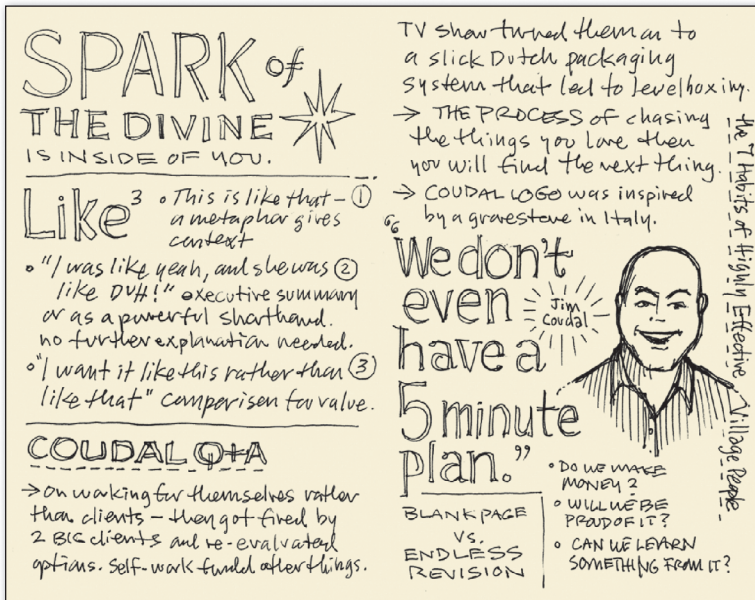 SPARK of
THE DIVINE
IS INSIDE OF YOU.
Like³ • This is like that – ①
a metaphor gives
context
• "I was like yeah, and she was ②
like DUH!" executive summary
or as a powerful shorthand.
no further explanation needed.
• "I want it like this rather than ③
like that" comparison for value.
COUDAL Q+A
→ On working for themselves rather
than clients – then got fired by
2 BIG clients and re-evaluated
options. Self-work fund other things.
TV show turned them on to
a slick Dutch packaging
system that led to Jewelboxing.
→ THE PROCESS of chasing
the things you love then
you will find the next thing.
→ COUDAL LOGO was inspired
by a gravestone in Italy.
"We don't
even
have a
5 minute
plan."
Jim
Coudal
BLANK PAGE
VS.
ENDLESS
REVISION
• DO WE MAKE
MONEY?
• WILL WE BE
PROUD OF IT?
• CAN WE LEARN
SOMETHING FROM IT?
the 7 Habits of Highly Effective Village People